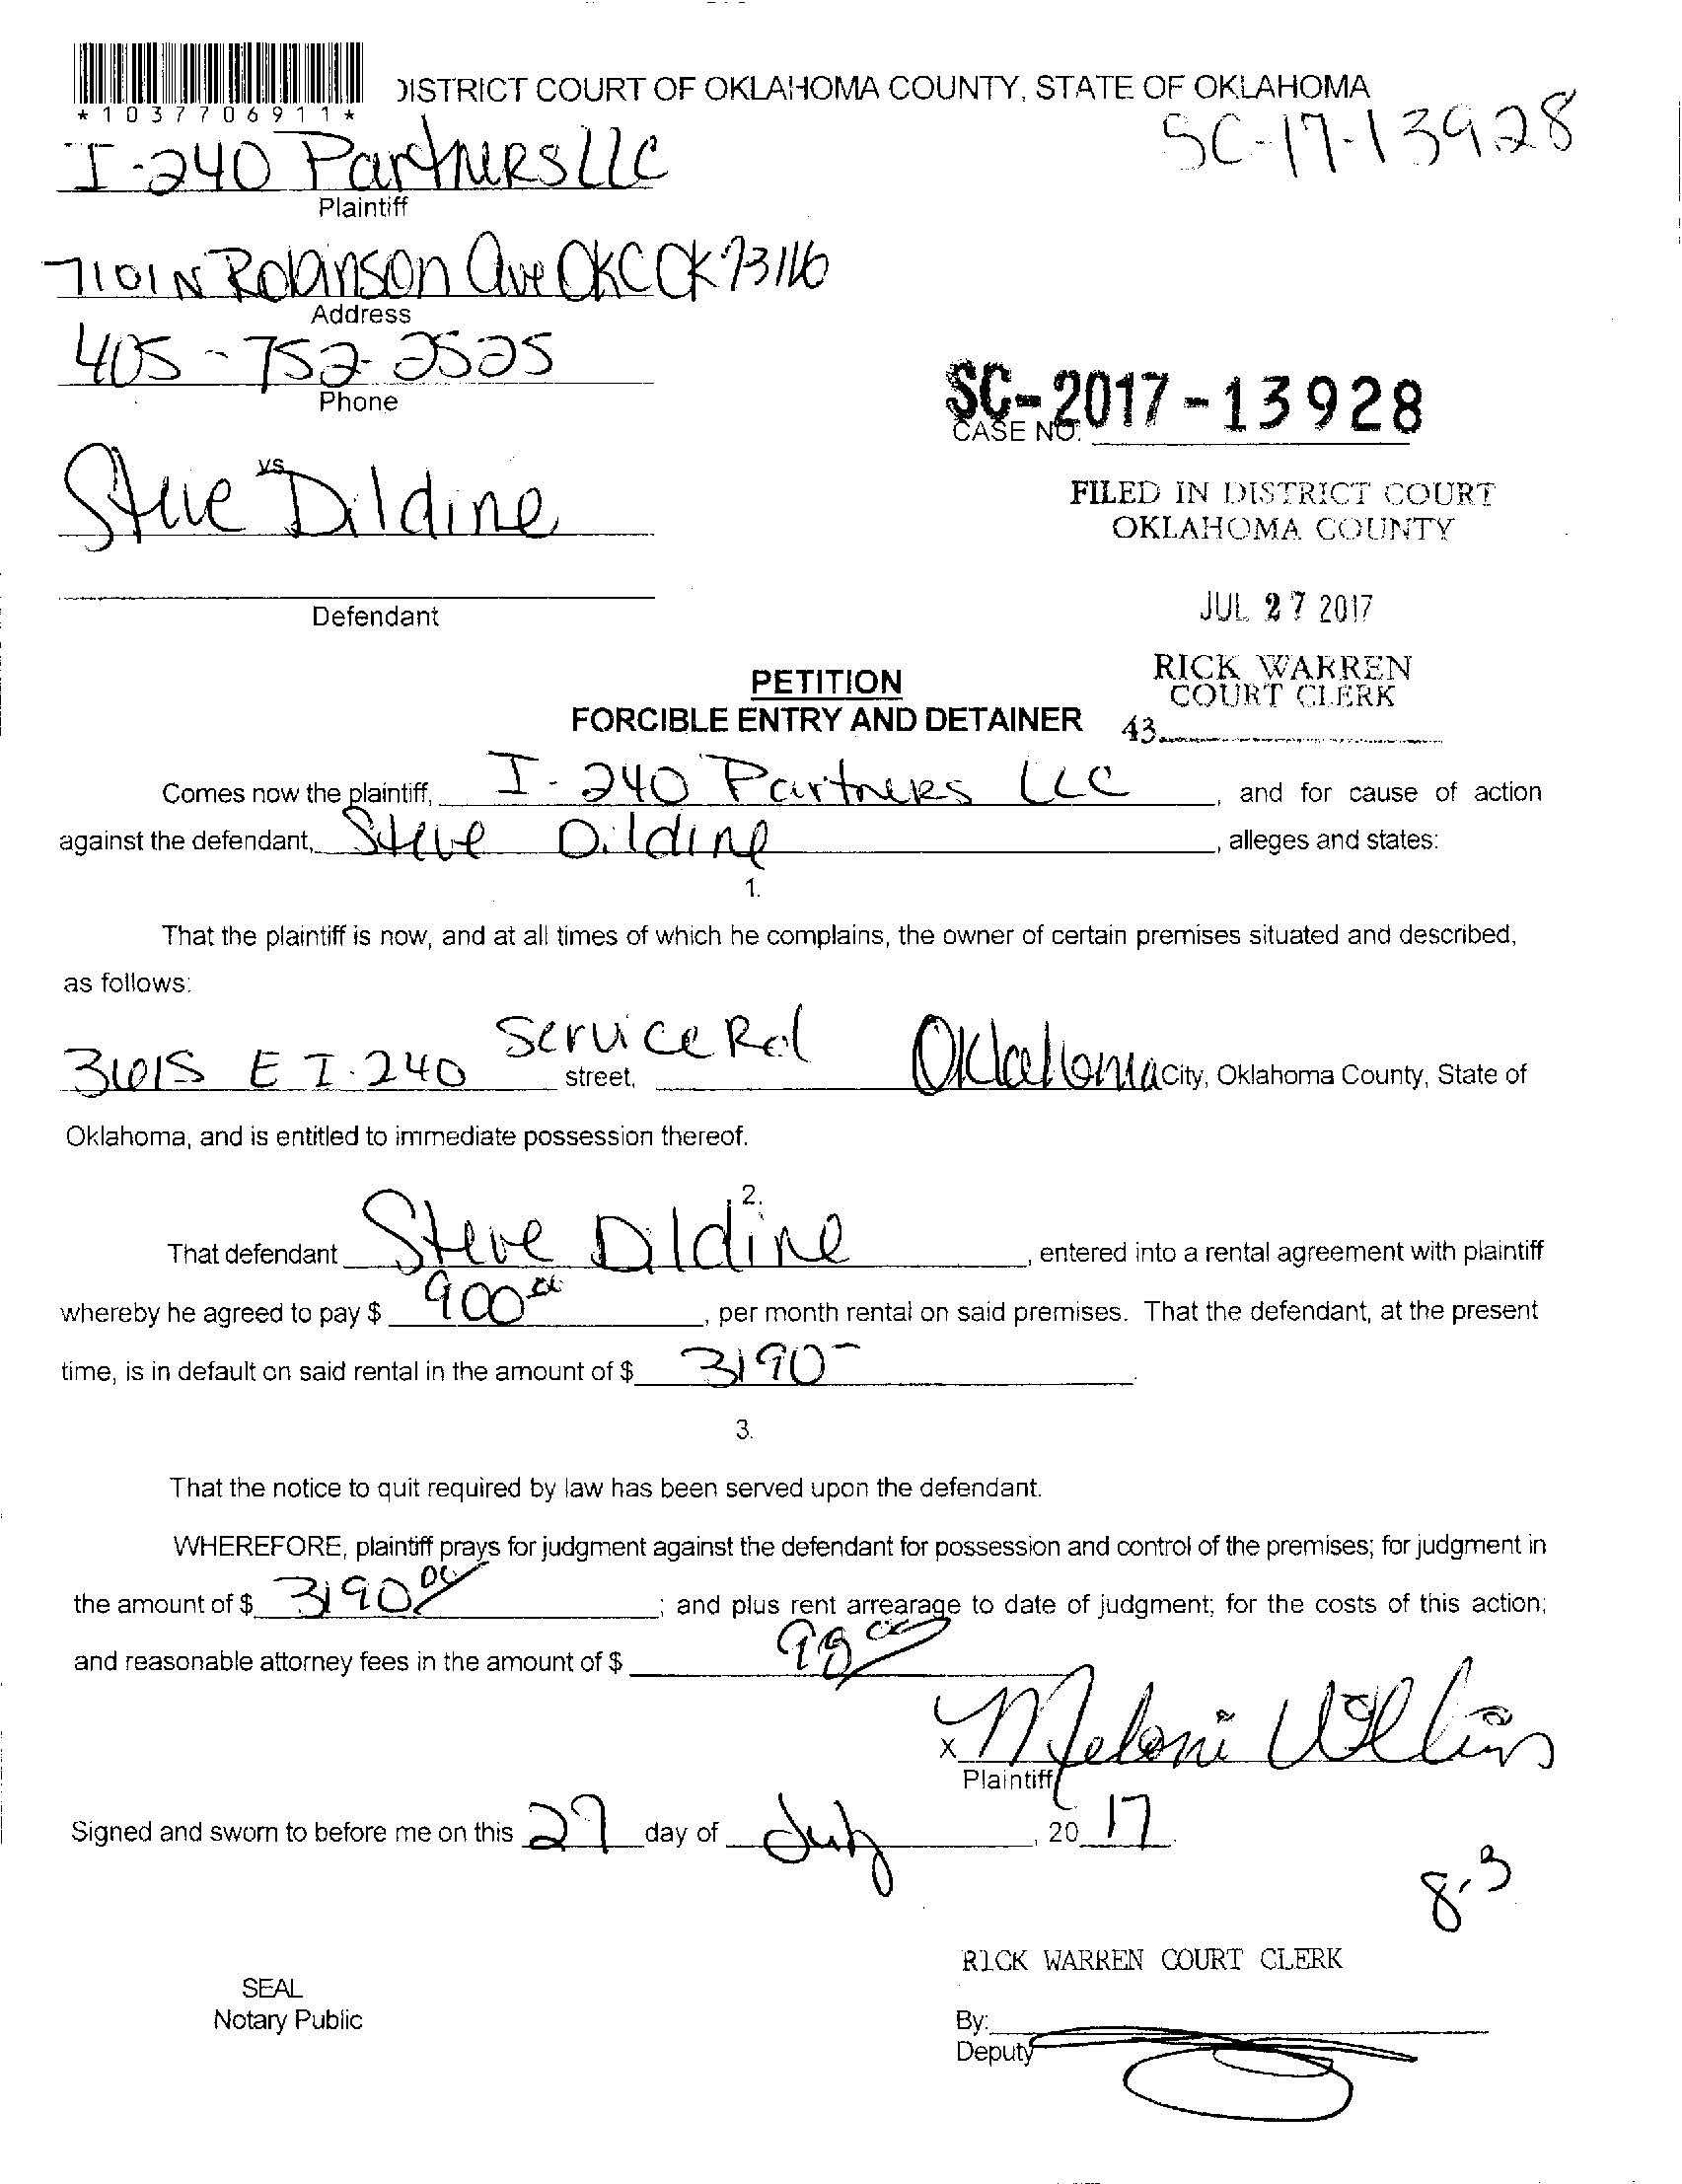 *1037706911*
DISTRICT COURT OF OKLAHOMA COUNTY, STATE OF OKLAHOMA
SC-17-13928
I-240 Partners LLC
Plaintiff
7101 N Robinson Ave OKC OK 73116
Address
405-752-2525
Phone
SC-2017-13928
CASE NO.
vs.
Steve Dildine
FILED IN DISTRICT COURT
OKLAHOMA COUNTY
Defendant
JUL 27 2017
RICK WARREN
COURT CLERK
43
PETITION
FORCIBLE ENTRY AND DETAINER
Comes now the plaintiff, I-240 Partners LLC, and for cause of action
against the defendant, Steve Dildine, alleges and states:
1.
That the plaintiff is now, and at all times of which he complains, the owner of certain premises situated and described,
as follows:
3615 E I-240 Service Rd street, Oklahoma City, Oklahoma County, State of
Oklahoma, and is entitled to immediate possession thereof.
2.
That defendant Steve Dildine, entered into a rental agreement with plaintiff
whereby he agreed to pay $ 900 00, per month rental on said premises. That the defendant, at the present
time, is in default on said rental in the amount of $ 3190-.
3.
That the notice to quit required by law has been served upon the defendant.
WHEREFORE, plaintiff prays for judgment against the defendant for possession and control of the premises; for judgment in
the amount of $ 3190 00; and plus rent arrearage to date of judgment; for the costs of this action;
and reasonable attorney fees in the amount of $ 98 00
X Meloni
Plaintiff
Signed and sworn to before me on this 27 day of July, 20 17.
8.3
RICK WARREN COURT CLERK
SEAL
Notary Public
By:
Deputy